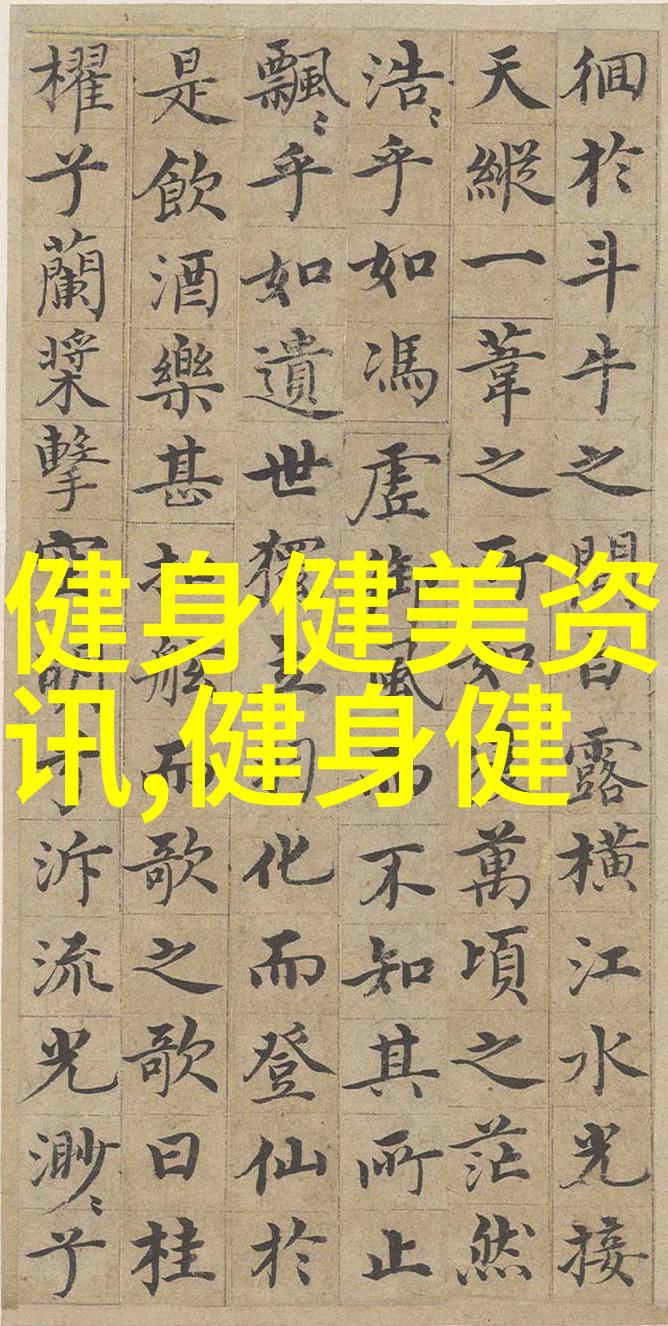 徊於斗牛之間白露橫江水光接
天縱一葦之所如萬頃之茫然
浩〻乎如馮虛御風而不知其所止
飄〻乎如遺世獨立羽化而登仙於
是飲酒樂甚扣舷而歌之歌曰桂
櫂兮蘭槳擊空明兮泝流光渺〻兮
健身健美资
讯,健身健